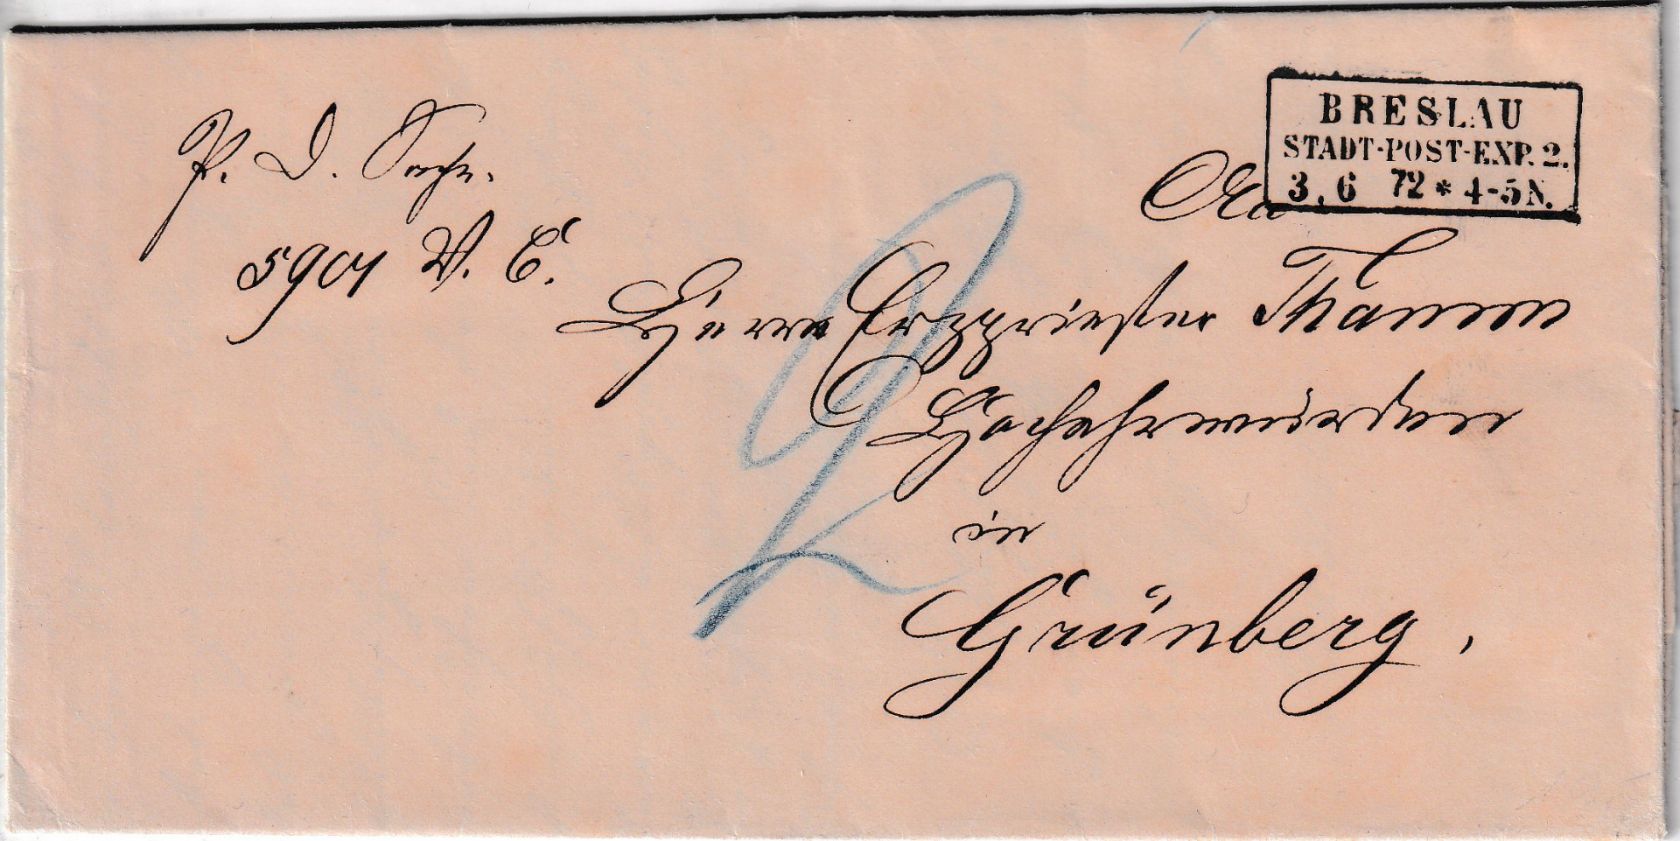 BRESLAU
STADT-POST-EXP. 2.
3. 6 72 * 4-5 N.
P. D. Sache.
5901 V. C.
An
Herrn Erzpriester
Hochehrwürden
in
Grünberg.
2